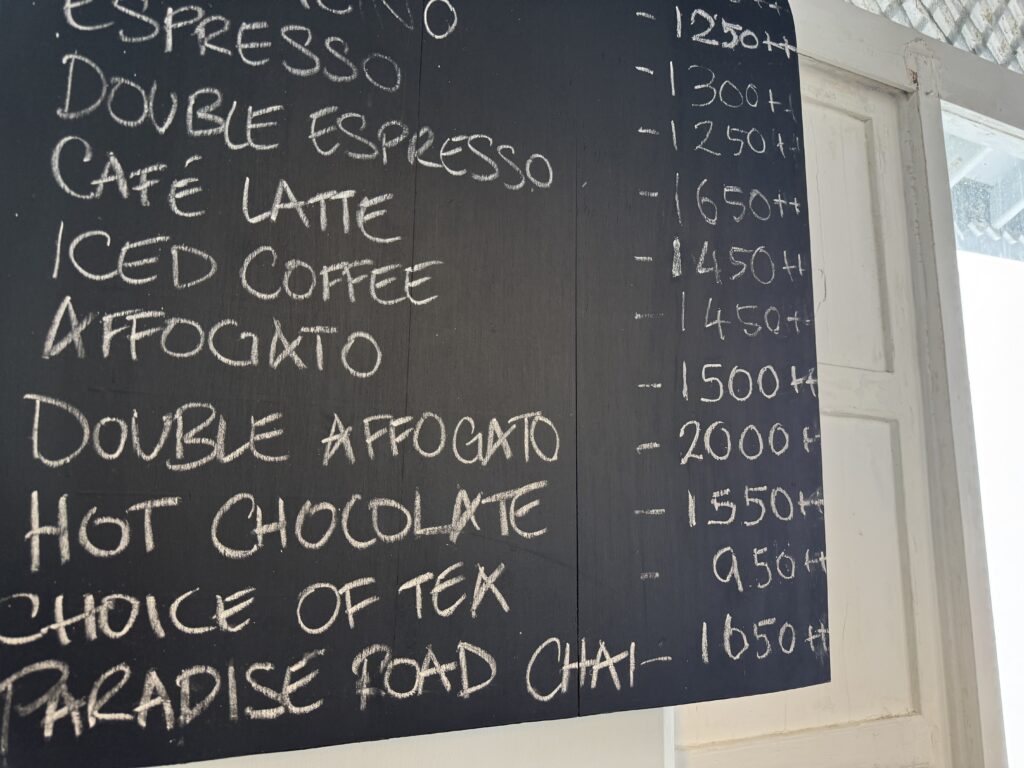 - 1250++
- 1300++
ESPRESSO - 1250++
DOUBLE ESPRESSO - 1650++
CAFÉ LATTE - 1450++
ICED COFFEE - 1450++
AFFOGATO - 1500++
DOUBLE AFFOGATO - 2000++
HOT CHOCOLATE - 1550++
CHOICE OF TEA - 950++
PARADISE ROAD CHAI - 1650++